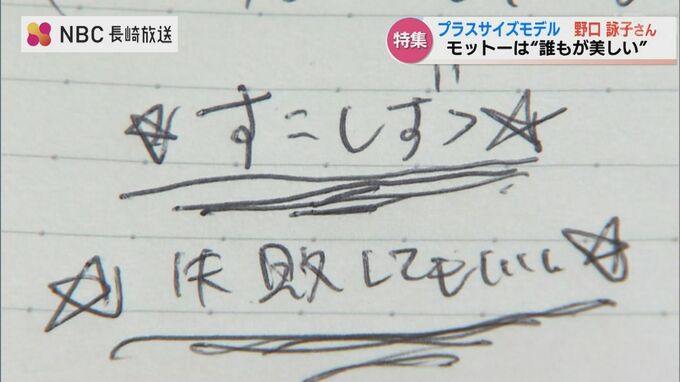 NBC 長崎放送
特集
プラスサイズモデル 野口 詠子さん
モットーは“誰もが美しい”
☆すこしずつ☆
☆失敗してもいい☆